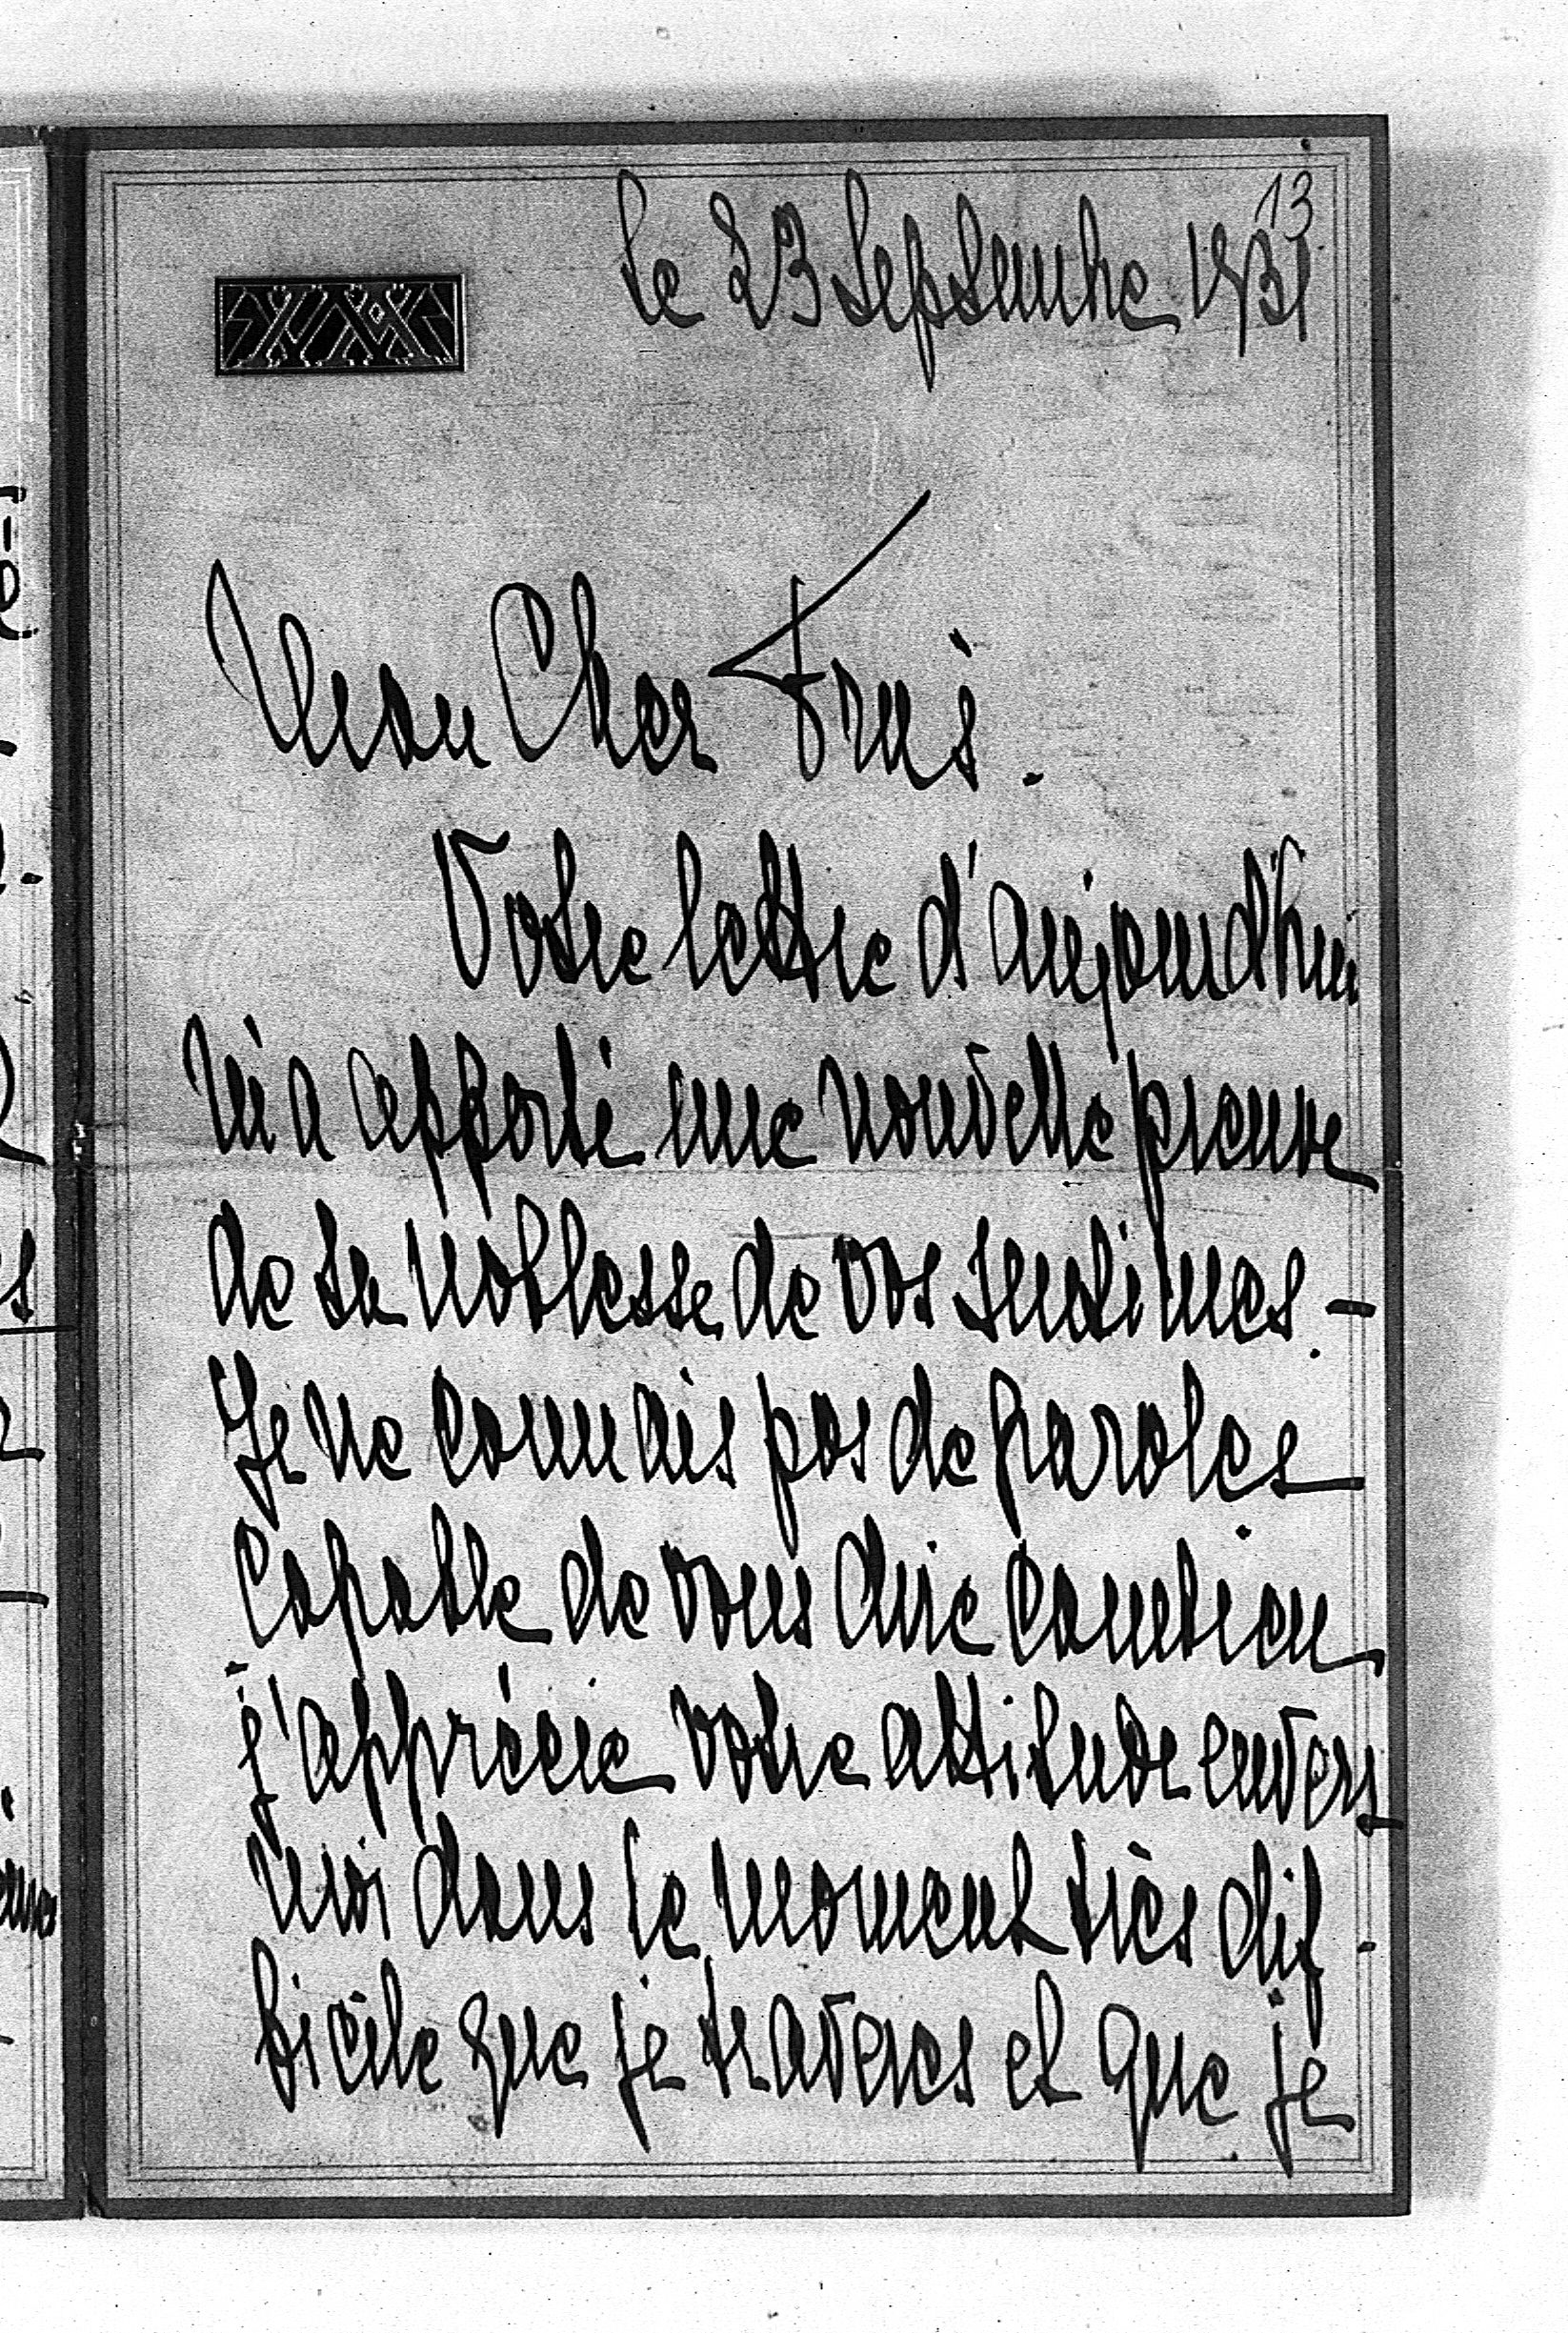 13
le 23 Septembre 1931
Mon Cher
Votre lettre d'aujourd'hui
m'a apporté une nouvelle preuve
de la noblesse de vos sentimes. -
Je ne connais pas de paroles
capable de vous dire combien
j'apprécie votre attitude envers
moi dans le moment très dif-
ficile que je traverses et que je